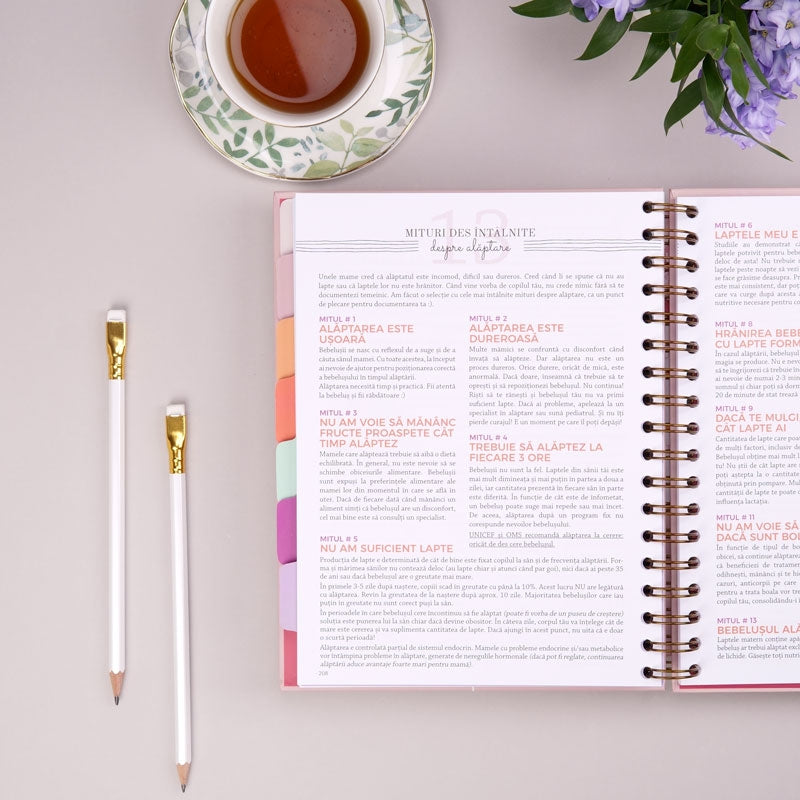 13
MITURI DES ÎNTÂLNITE
despre alăptare
Unele mame cred că alăptatul este incomod, dificil sau dureros. Cred când li se spune că nu au
lapte sau că laptele lor nu este hrănitor. Când vine vorba de copilul tău, nu crede nimic fără să te
documentezi temeinic. Am făcut o selecție cu cele mai întâlnite mituri despre alăptare, ca un punct
de plecare pentru documentarea ta :).
MITUL # 1
ALĂPTAREA ESTE
UȘOARĂ
Bebelușii se nasc cu reflexul de a suge și de a
căuta sânul mamei. Cu toate acestea, la început
ai nevoie de ajutor pentru poziționarea corectă
a bebelușului în timpul alăptării.
Alăptarea necesită timp și practică. Fii atentă
la bebeluș și fii răbdătoare :)
MITUL # 3
NU AM VOIE SĂ MĂNÂNC
FRUCTE PROASPETE CÂT
TIMP ALĂPTEZ
Mamele care alăptează trebuie să aibă o dietă
echilibrată. În general, nu este nevoie să se
schimbe obiceiurile alimentare. Bebelușii
sunt expuși la preferințele alimentare ale
mamei lor din momentul în care se află în
uter. Dacă de fiecare dată când mănânci un
aliment simți că bebelușul are un disconfort,
cel mai bine este să consulți un specialist.
MITUL # 2
ALĂPTAREA ESTE
DUREROASĂ
Multe mămici se confruntă cu disconfort când
învață să alăpteze. Dar alăptarea nu este un
proces dureros. Orice durere, oricât de mică, este
anormală. Dacă doare, înseamnă că trebuie să te
oprești și să repoziționezi bebelușul. Nu continua!
Riști să te rănești și bebelușul tău nu va primi
suficient lapte. Dacă ai probleme, apelează la un
specialist în alăptare sau sună pediatrul. Și nu îți
pierde curajul! E un moment pe care îl poți depăși!
MITUL # 4
TREBUIE SĂ ALĂPTEZ LA
FIECARE 3 ORE
Bebelușii nu sunt la fel. Laptele din sânii tăi este
mai mult dimineața și mai puțin în partea a doua a
zilei, iar cantitatea prezentă în fiecare sân în parte
este diferită. În funcție de cât este de înfometat,
un bebeluș poate suge mai repede sau mai încet.
De aceea, alăptare după un program fix nu
corespunde nevoilor bebelușului.
UNICEF și OMS recomandă alăptarea la cerere:
oricât de des cere bebelușul.
MITUL # 5
NU AM SUFICIENT LAPTE
Producția de lapte e determinată de cât de bine este fixat copilul la sân și de frecvența alăptării. For-
ma și mărimea sânilor nu contează deloc (au lapte chiar și atunci când par goi), nici dacă ai peste 35
de ani sau dacă bebelușul are o greutate mai mare.
În primele 3-5 zile după naștere, copiii scad în greutate cu până la 10%. Acest lucru NU are legătură
cu alăptarea. Revin la greutatea de la naștere după aprox. 10 zile. Majoritatea bebelușilor care iau
puțin în greutate nu sunt corect puși la sân.
În perioadele în care bebelușul cere încontinuu să fie alăptat (poate fi vorba de un puseu de creștere)
soluția este punerea lui la sân chiar dacă devine obositor. În câteva zile, corpul tău va înțelege cât de
mare este cererea și va suplimenta cantitatea de lapte. Dacă ajungi în acest punct, nu uita că e doar
o scurtă perioadă!
Alăptarea e controlată parțial de sistemul endocrin. Mamele cu probleme endocrine și/sau metabolice
vor întâmpina probleme în alăptare, generate de neregulile hormonale (dacă pot fi reglate, continuarea
alăptării aduce avantaje foarte mari pentru mamă).
208
MITUL # 6
LAPTELE MEU E
Studiile au demonstrat că
laptele potrivit pentru bebe
deloc de asta! Nu trebuie
laptele peste noapte să vezi
se face grăsime deasupra. Pr
este mai consistent, dar pot
care va curge după acesta a
nutritive necesare pentru co
MITUL # 8
HRĂNIREA BEBE
CU LAPTE FORM
În cazul alăptării, bebelușul
magia se produce. Nu e nevoi
să te îngrijorezi că trebuie în
ai nevoie de numai 2-3 minu
somnul și chiar poți să dormi
20 de minute de stat trează
MITUL # 9
DACĂ TE MULGI,
CÂT LAPTE AI
Cantitatea de lapte care poat
de mulți factori, inclusiv de
Bebelușul obține mai mult l
tu! Nu ști de cât lapte are n
poți aștepta la o cantitate
obținută prin pompare. Mult
cantității de lapte te poate c
influența lactația.
MITUL # 11
NU AM VOIE SĂ
DACĂ SUNT BOL
În funcție de tipul de bo
obicei, să continue alăptarea
că beneficiezi de tratamen
odihnești, mănânci și te hi
cazuri, anticorpii pe care
pentru a trata boala vor tre
copilul tău, consolidându-i
MITUL # 13
BEBELUȘUL ALĂ
Laptele matern conține apă
bebeluș ar trebui alăptat exclu
de lichide. Găsește toți nutri